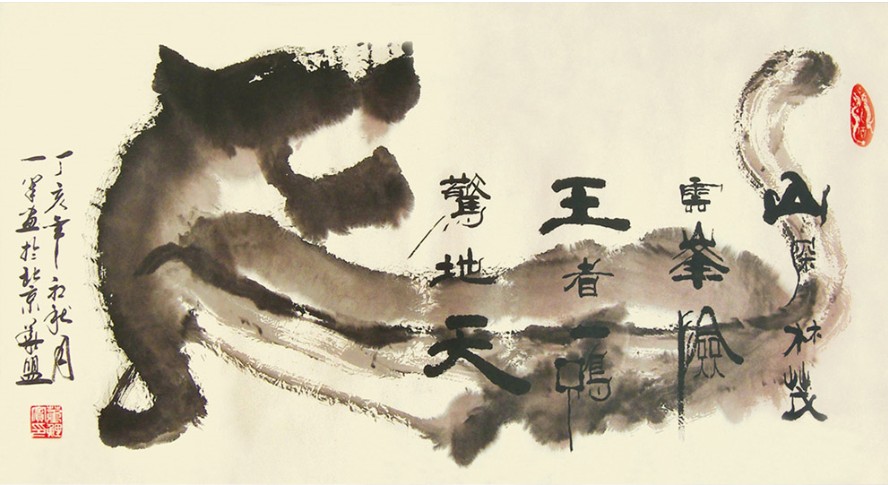 山深林茂
雲峯險
王者一鳴
驚地天
丁亥年初秋月
一筆画於北京華盟